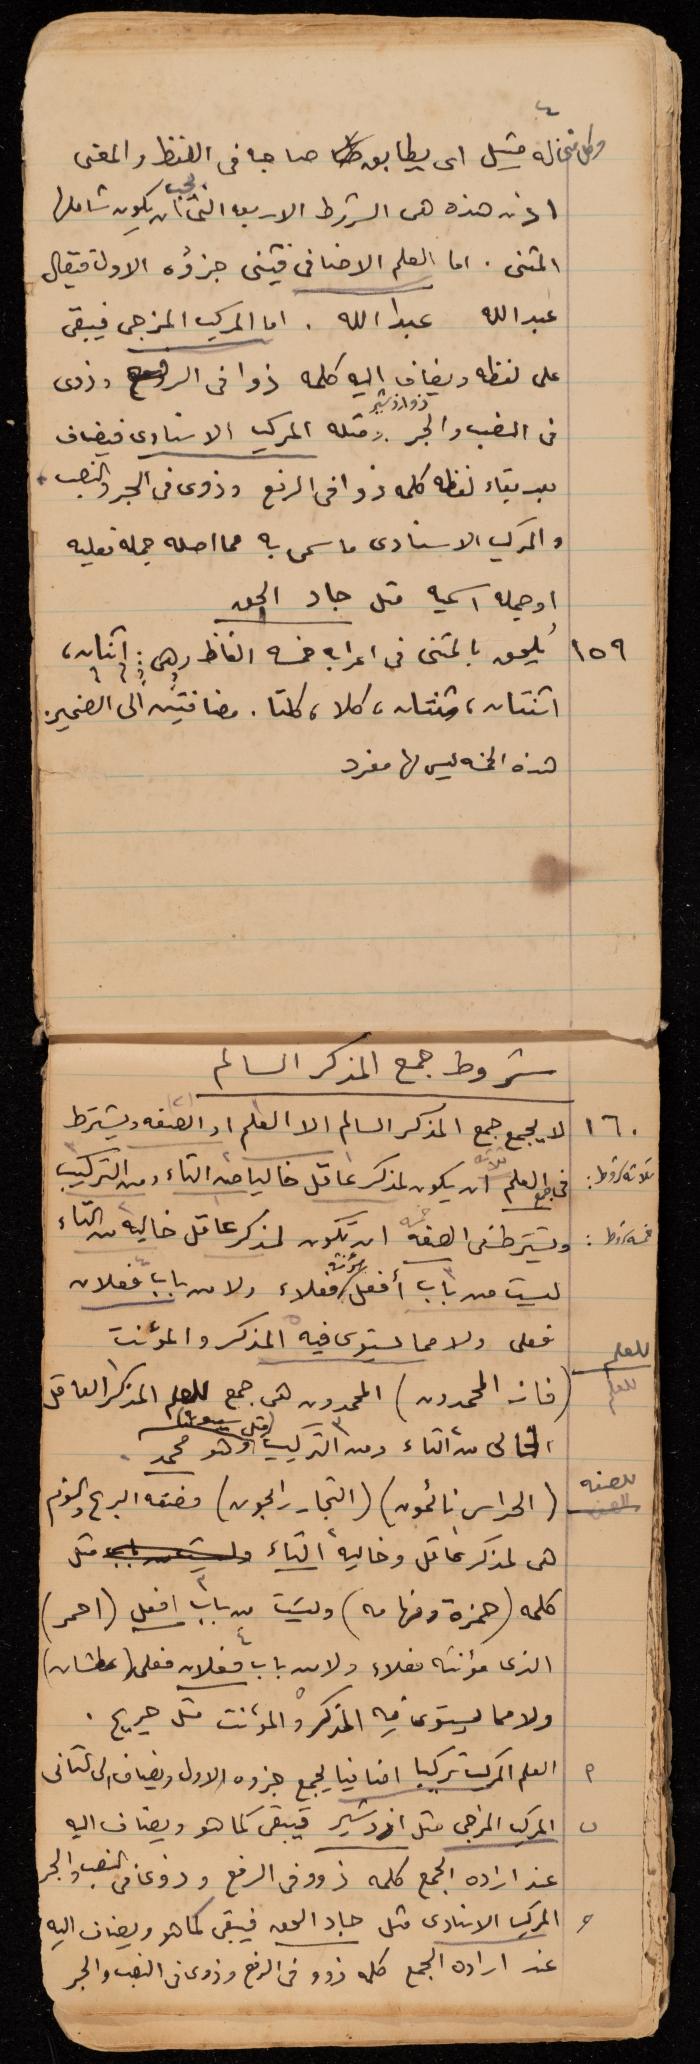 ٤
وكل شئ له مثيل اى يطابق صاحبه فى اللفظ والمعنى
اذن هذه هى الشروط الاربعه التى يجب ان يكون شاملها
المثنى . اما العلم الاضافى فيثنى جزؤه الاول فيقال
عبدالله عبدا الله . اما المركب المزجى فيبقى
على لفظه ويضاف اليه كلمه ذوا فى الرفع وذوى
فى النصب والجر ومثله المركب الاسنادى فيضاف
بعد بقاء لفظه كلمه ذوا فى الرفع وذوى فى الجر والنصب
والمركب الاسنادى ما سمى به مما اصله جمله فعليه
او جمله اسميه مثل جاد الحق
١٥٩ يُلحق بالمثنى فى اعرابه خمسه الفاظ وهى : اثنان،
اثنتان، ثنتان، كلا، كلتا . مضافتين الى الضمير.
هذه الخمسه ليس لها مفرد
شروط جمع المذكر السالم
١٦٠ لا يجمع جمع المذكر السالم الا العلم او الصفه ويشترط
ثلاثة شروط : فى جمع العلم ان يكون لمذكر عاقل خاليا من التاء ومن التركيب
خمسه شروط : ويشترط فى الصفه ان تكون لمذكر عاقل خاليه من التاء
ليست من باب أفعل مؤنثه فعلاء ولا من باب فعلان
فعلى ولا مما يستوى فيه المذكر والمؤنث
للعلم
للعلم (فاز المحمدون) المحمدون هى جمع للعلم المذكر العاقل
الخالى من التاء ومن التركيب وهو محمد
للصفه (الحراس نائمون) (التجار رابحون) فصفه الربح والنوم
هى لمذكر عاقل وخاليه التاء مثل
كلمه (همزة وفهامه) وليست من باب افعل (احمر)
الذى مؤنثه فعلاء ولا من باب فعلان فعلى (عطشان)
ولا مما يستوى فيه المذكر والمؤنث مثل جريح .
العلم المركب تركيبا اضافيا يجمع جزءه الاول ويضاف الى الثانى
ب المركب المزجى مثل ازدشير فيبقى كما هو ويضاف اليه
عند اراده الجمع كلمه ذوو فى الرفع وذوى فى النصب والجر
المركب الاسنادى مثل جاد الحق فيبقى كما هو ويضاف اليه
عند اراده الجمع كلمه ذوو فى الرفع وذوى فى النصب والجر